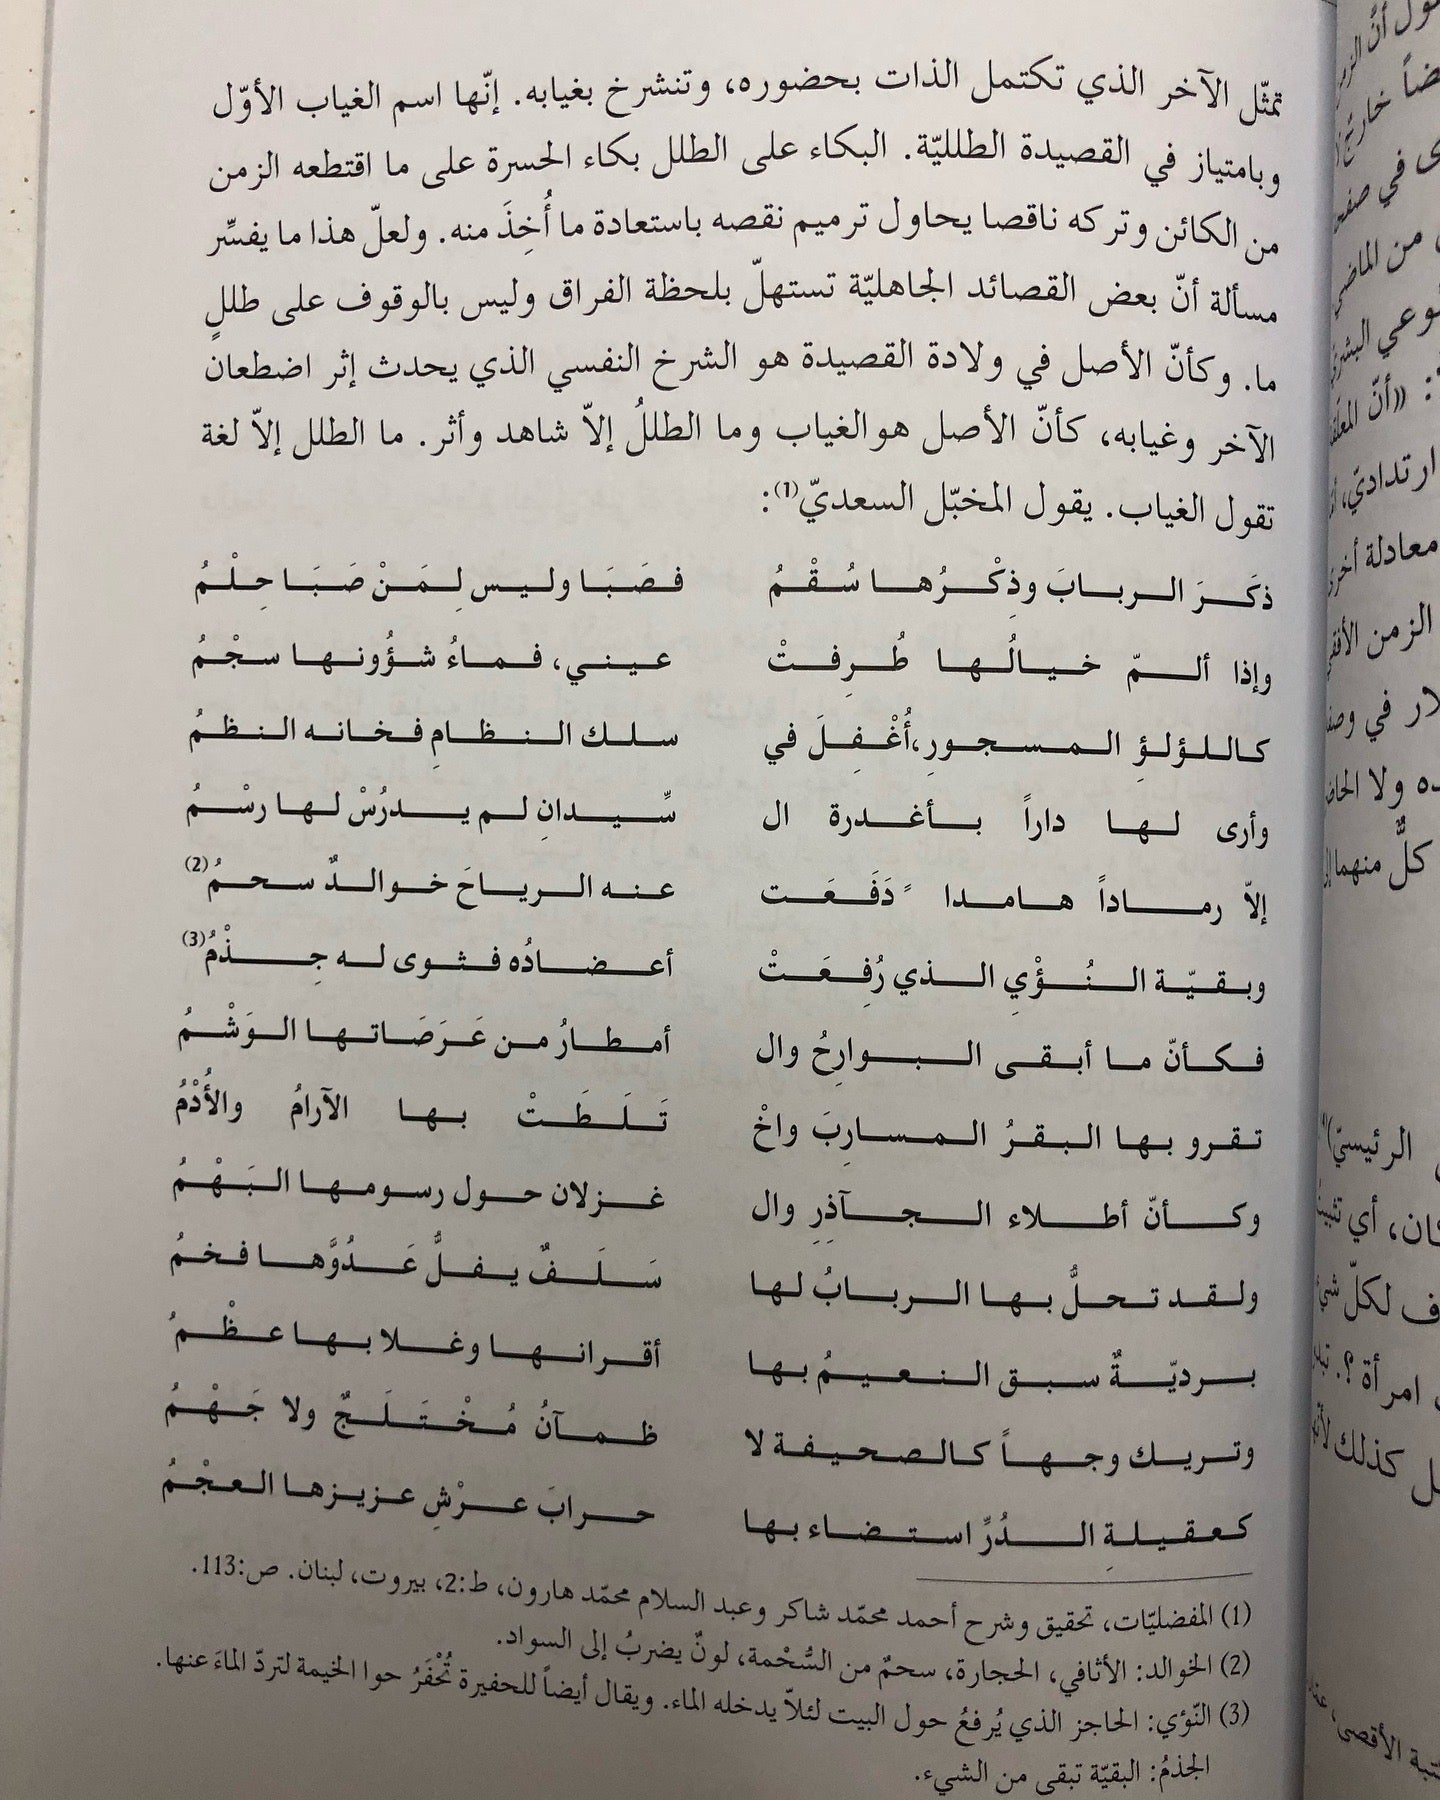 تمثّل الآخر الذي تكتمل الذات بحضوره، وتنشرخ بغيابه. إنّها اسم الغياب الأوّل
وبامتياز في القصيدة الطلليّة. البكاء على الطلل بكاء الحسرة على ما اقتطعه الزمن
من الكائن وتركه ناقصا يحاول ترميم نقصه باستعادة ما أُخِذَ منه. ولعلّ هذا ما يفسِّر
مسألة أنّ بعض القصائد الجاهليّة تستهلّ بلحظة الفراق وليس بالوقوف على طللٍ
ما. وكأنّ الأصل في ولادة القصيدة هو الشرخ النفسي الذي يحدث إثر اضطعان
الآخر وغيابه، كأنّ الأصل هو الغياب وما الطللُ إلاّ شاهد وأثر. ما الطلل إلاّ لغة
تقول الغياب. يقول المخبّل السعديّ(1):
ذكَرَ الربابَ وذِكْرُها سُقْمُ فصَبَا وليس لِمَنْ صَبَا حِلْمُ
وإذا ألمّ خيالُها طُرِفتْ عيني، فماءُ شؤُونها سجْمُ
كاللؤلؤِ المسجورِ،أُغْفِلَ في سلك النظامِ فخانه النظمُ
وأرى لها داراً بأغدرة ال سِّيدانِ لم يدرُسْ لها رسْمُ
إلاّ رماداً هامدا ً دَفَعَت عنه الرياحَ خوالدٌ سحمُ(2)
وبقيّة النُؤْيِ الذي رُفِعَتْ أعضادُه فثوى له جِذْمُ(3)
فكأنّ ما أبقى البوارِحُ وال أمطارُ من عَرَصَاتها الوَشْمُ
تقرو بها البقرُ المسارِبَ واخْ تَلَطَتْ بها الآرامُ والأُدْمُ
وكأنّ أطلاء الجآذِرِ وال غزلان حول رسومها البَهْمُ
ولقد تحلُّ بها الربابُ لها سَلَفٌ يفلُّ عَدُوَّها فخمُ
برديّةٌ سبق النعيمُ بها أقرانها وغلا بها عظْمُ
وتريك وجهاً كالصحيفة لا ظمآنُ مُخْتَلَجٌ ولا جَهْمُ
كعقيلةِ الدُرِّ استضاء بها حرابَ عرْشِ عزيزها العجْمُ
(1) المفضليّات، تحقيق وشرح أحمد محمّد شاكر وعبد السلام محمّد هارون، ط:2، بيروت، لبنان. ص:113.
(2) الخوالد: الأثافي، الحجارة، سحمٌ من السُّحْمة، لونٌ يضربُ إلى السواد.
(3) النّؤي: الحاجز الذي يُرفعُ حول البيت لئلاّ يدخله الماء. ويقال أيضاً للحفيرة تُحْفَرُ حوا الخيمة لتردّ الماءَ عنها.
الجذمُ: البقيّة تبقى من الشيء.